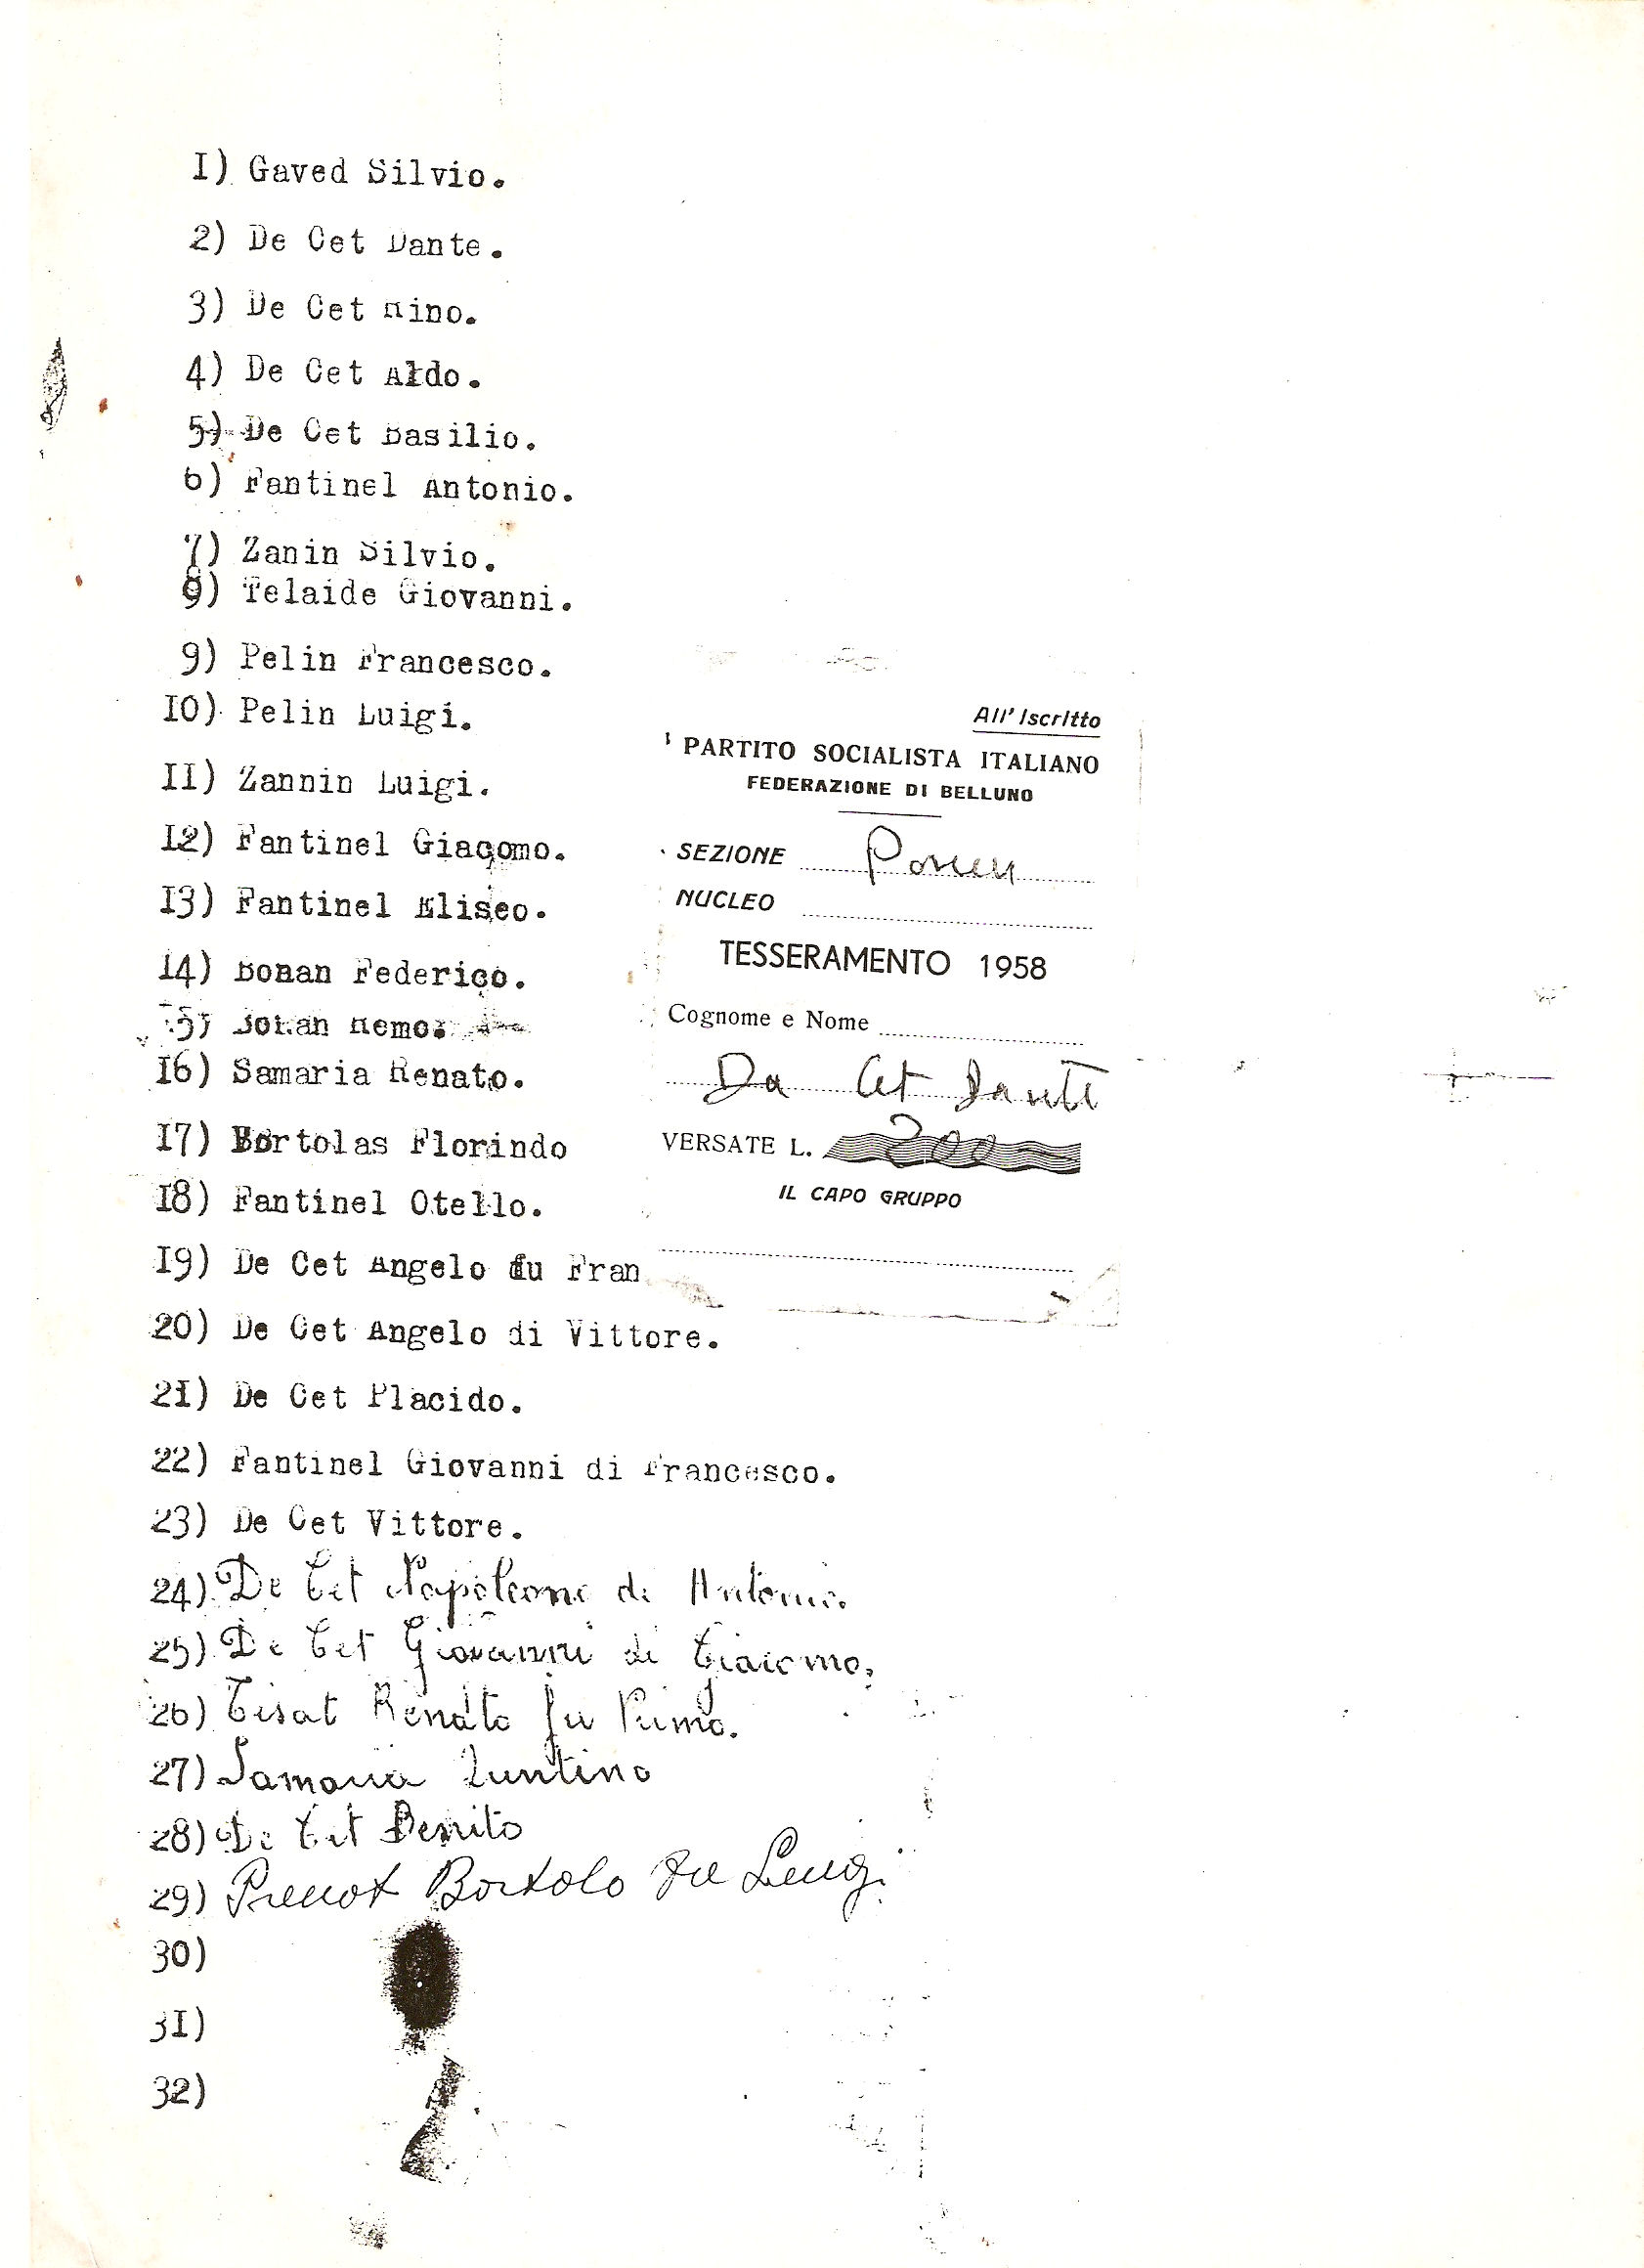 I) Gaved Silvio.
2) De Cet Dante.
3) De Cet Nino.
4) De Cet Aldo.
5) De Cet Basilio.
6) Fantinel Antonio.
7) Zanin Silvio.
8) Telaide Giovanni.
9) Pelin Francesco.
I0) Pelin Luigi.
II) Zannin Luigi.
I2) Fantinel Giacomo.
I3) Fantinel Eliseo.
I4) Bonan Federico.
I5) Bonan Remo.
I6) Samaria Renato.
I7) Bortolas Florindo
I8) Fantinel Otello.
I9) De Cet Angelo fu Fran
20) De Cet Angelo di Vittore.
2I) De Cet Placido.
22) Fantinel Giovanni di Francesco.
23) De Cet Vittore.
24) De Cet Napoleone di Antonio.
25) De Cet Giovanni di Giacomo.
26) Tisat Renato fu Primo.
27) Samaria Quintino
28) De Cet Benito
29) Bortolo fu Luigi
30)
3I)
32)
All' Iscritto
PARTITO SOCIALISTA ITALIANO
FEDERAZIONE DI BELLUNO
SEZIONE
NUCLEO
TESSERAMENTO 1958
Cognome e Nome
Da Cet Dante
VERSATE L. 200
IL CAPO GRUPPO